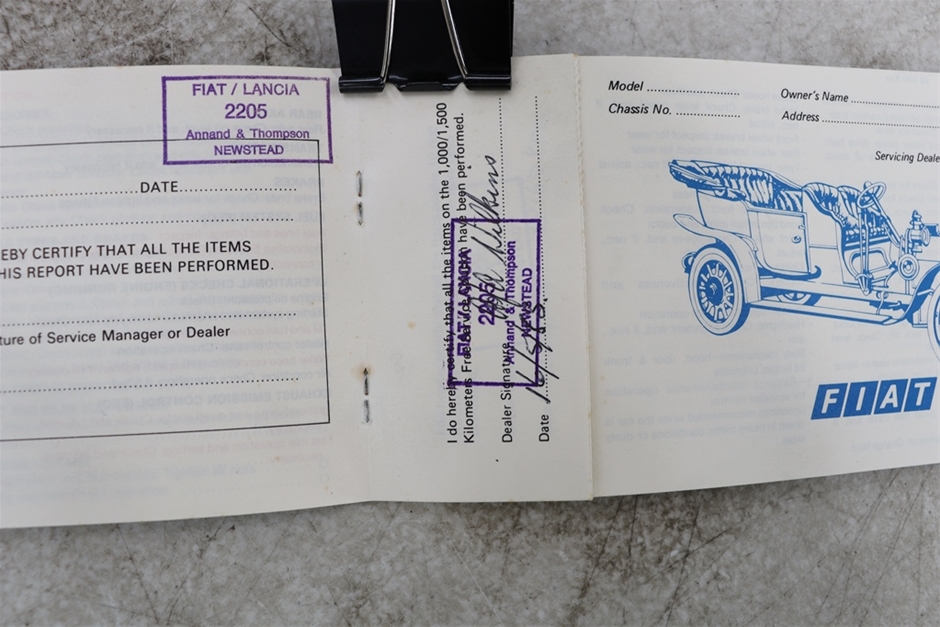 FIAT / LANCIA
2205
Annand & Thompson
NEWSTEAD
DATE
EBY CERTIFY THAT ALL THE ITEMS
HIS REPORT HAVE BEEN PERFORMED.
ture of Service Manager or Dealer
I do hereby certify that all the items on the 1,000/1,500
Kilometers Free Service have been performed.
Dealer Signature
Date
FIAT / LANCIA
2205
Annand & Thompson
NEWSTEAD
Model
Chassis No.
Owner's Name
Address
Servicing Deale
FIAT